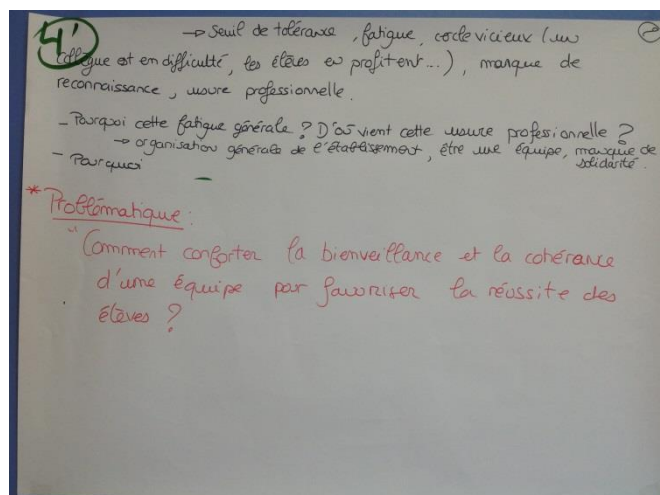 4'
→ Seuil de tolérance, fatigue, cercle vicieux (un
collègue est en difficulté, les élèves en profitent...), manque de
reconnaissance, usure professionnelle.
2
- Pourquoi cette fatigue générale ? D'où vient cette usure professionnelle ?
→ organisation générale de l'établissement, être une équipe, manque de
solidarité.
- Pourquoi
* Problématique :
"Comment conforter la bienveillance et la cohérence
d'une équipe par favoriser la réussite des
élèves ?